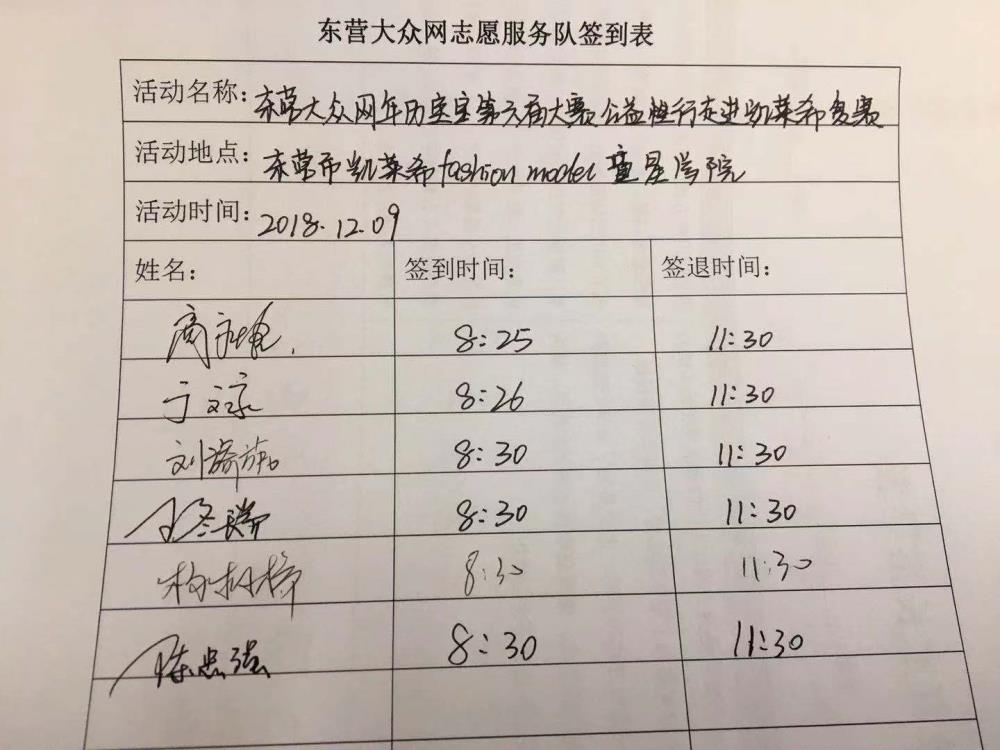 东营大众网志愿服务队签到表
活动名称：东营大众网年历宝宝第六届大赛公益性行走进凯莱希复赛
活动地点：东营市凯莱希fashion model童星学院
活动时间：2018.12.09
姓名： 签到时间： 签退时间：
8:25 11:30
于文 8:26 11:30
刘 8:30 11:30
王冬瑞 8:30 11:30
8:30 11:30
陈忠强 8:30 11:30